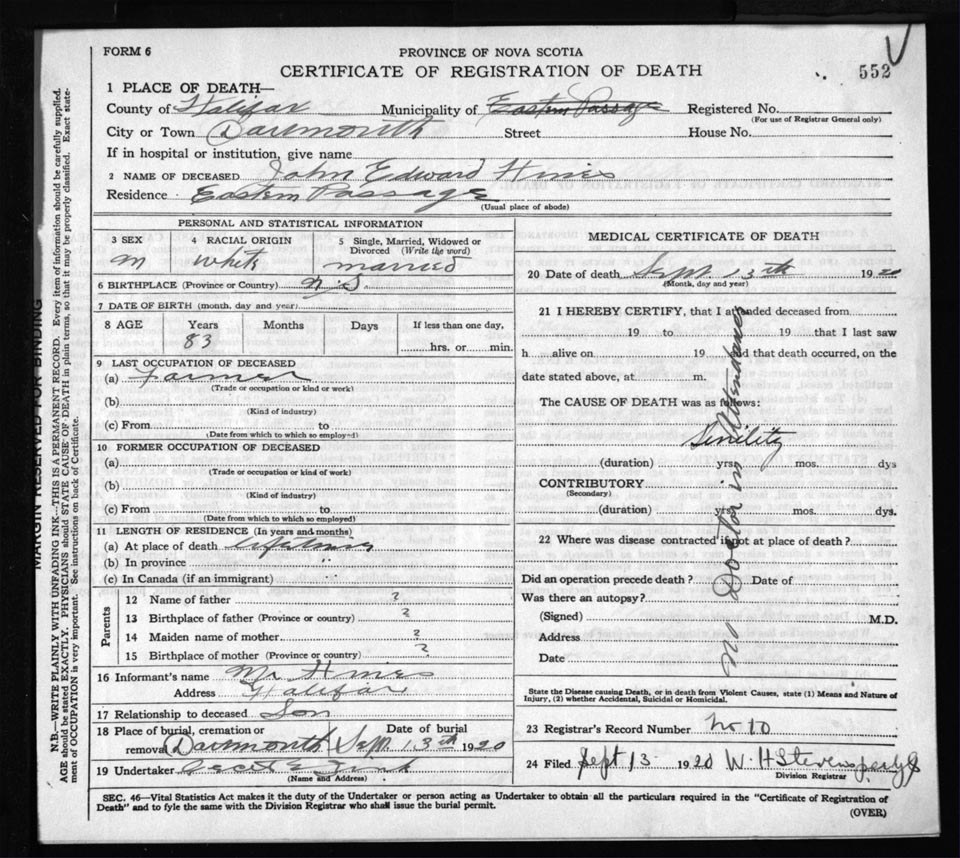 FORM 6
PROVINCE OF NOVA SCOTIA
CERTIFICATE OF REGISTRATION OF DEATH
552
1 PLACE OF DEATH—
County of Halifax Municipality of Eastern Passage Registered No.
(For use of Registrar General only)
City or Town Dartmouth Street House No.
If in hospital or institution, give name
2 NAME OF DECEASED John Edward Hines
Residence Eastern Passage
(Usual place of abode)
PERSONAL AND STATISTICAL INFORMATION
3 SEX 4 RACIAL ORIGIN 5 Single, Married, Widowed or Divorced (Write the word)
m white married
6 BIRTHPLACE (Province or Country) N.S.
7 DATE OF BIRTH (month, day and year)
8 AGE Years Months Days If less than one day,
83 hrs. or min.
9 LAST OCCUPATION OF DECEASED
(a) Farmer
(Trade or occupation or kind or work)
(b)
(Kind of industry)
(c) From to
(Date from which to which so employed)
10 FORMER OCCUPATION OF DECEASED
(a)
(Trade or occupation or kind of work)
(b)
(Kind of industry)
(c) From to
(Date from which to which so employed)
11 LENGTH OF RESIDENCE (In years and months)
(a) At place of death lifetime
(b) In province "
(c) In Canada (if an immigrant) "
Parents
12 Name of father ?
13 Birthplace of father (Province or country) ?
14 Maiden name of mother ?
15 Birthplace of mother (Province or country) ?
16 Informant's name Mr Hines
Address Halifax
17 Relationship to deceased Son
18 Place of burial, cremation or removal Dartmouth Date of burial Sept 13th 1920
19 Undertaker
(Name and Address)
MEDICAL CERTIFICATE OF DEATH
20 Date of death Sept. 13th 1920
(Month, day and year)
21 I HEREBY CERTIFY, that I attended deceased from
19 to 19 that I last saw
h alive on 19 and that death occurred, on the
date stated above, at m.
The CAUSE OF DEATH was as follows:
Senility
(duration) yrs. mos. dys
CONTRIBUTORY
(Secondary)
(duration) yrs. mos. dys.
22 Where was disease contracted if not at place of death?
Did an operation precede death? Date of
Was there an autopsy?
(Signed) M.D.
Address
Date
No Doctor in Attendance
State the Disease causing Death, or in death from Violent Causes, state (1) Means and Nature of
Injury, (2) whether Accidental, Suicidal or Homicidal.
23 Registrar's Record Number No 10
24 Filed Sept 13 1920 W. H Stevens
Division Registrar
SEC. 46—Vital Statistics Act makes it the duty of the Undertaker or person acting as Undertaker to obtain all the particulars required in the "Certificate of Registration of
Death" and to fyle the same with the Division Registrar who shall issue the burial permit.
(OVER)
MARGIN RESERVED FOR BINDING
N.B.—WRITE PLAINLY WITH UNFADING INK—THIS IS A PERMANENT RECORD. Every item of information should be carefully supplied.
AGE should be stated EXACTLY. PHYSICIANS should STATE CAUSE OF DEATH in plain terms, so that it may be properly classified. Exact statement of OCCUPATION is very important. See instructions on back of Certificate.